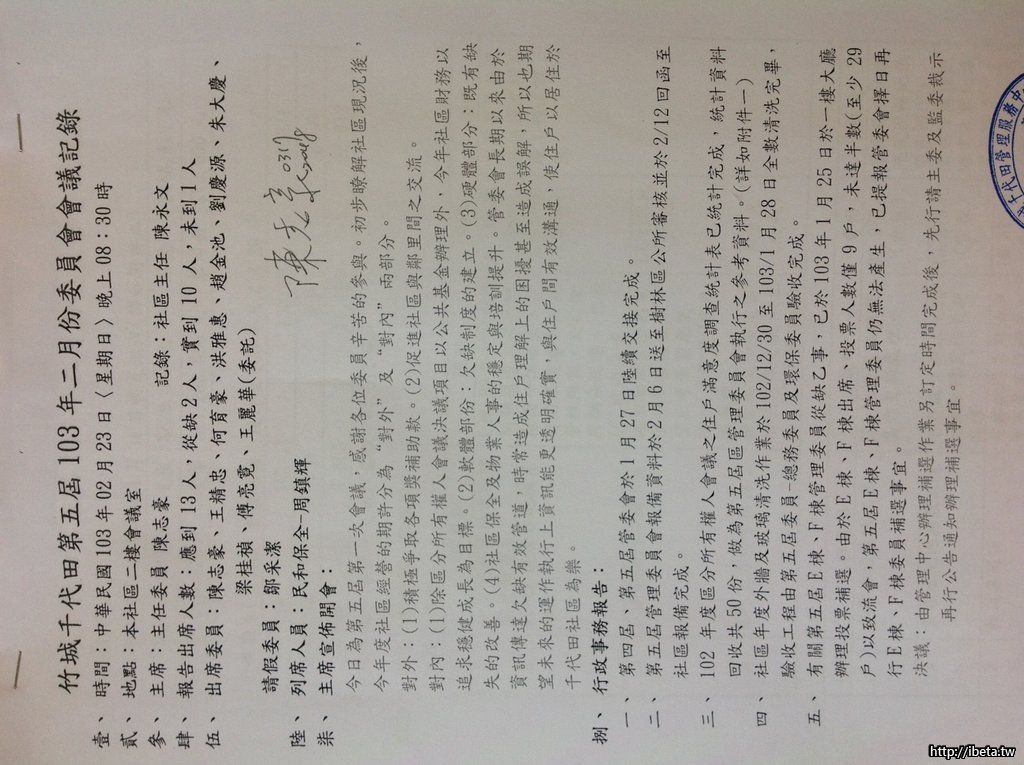 竹城千代田第五屆103年二月份委員會會議記錄
壹、時間：中華民國103年02月23日〈星期日〉晚上08：30時
貳、地點：本社區二樓會議室
參、主席：主任委員 陳志豪 記錄：社區主任 陳永文
肆、報告出席人數：應到13人，從缺2人，實到10人，未到1人
伍、出席委員：陳志豪、王精忠、何育豪、洪雅惠、趙金池、劉慶源、朱大慶、
梁桂禎、傅亮寬、王麗華(委託)
請假委員：鄒采潔
陸、列席人員：民和保全-周鎮輝
柒、主席宣佈開會：
陳志豪 0317
今日為第五屆第一次會議，感謝各位委員辛苦的參與。初步瞭解社區現況後，
今年度社區經營的期許分為“對外”及“對內”兩部分。
對外：(1)積極爭取各項獎補助款。(2)促進社區與鄰里間之交流。
對內：(1)除區分所有權人會議決議項目以公共基金辦理外，今年社區財務以
追求穩健成長為目標。(2)軟體部份：欠缺制度的建立。(3)硬體部分：既有缺
失的改善。(4)社區保全及物業人事的穩定與培訓提升。管委會長期以來由於
資訊傳達欠缺有效管道，時常造成住戶理解上的困擾甚至造成誤解，所以也期
望未來的運作執行上資訊能更透明確實，與住戶間有效溝通，使住戶以居住於
千代田社區為樂。
捌、行政事務報告：
一、第四屆、第五屆管委會於1月27日陸續交接完成。
二、第五屆管理委員會報備資料於2月6日送至樹林區公所審核並於2/12回函至
社區報備完成。
三、102年度區分所有權人會議之住戶滿意度調查統計表已統計完成，統計資料
回收共50份，做為第五屆區管理委員會執行之參考資料。(詳如附件一)
四、社區年度外牆及玻璃清洗作業於102/12/30至103/1月28日全數清洗完畢，
驗收工程由第五屆委員-總務委員及環保委員驗收完成。
五、有關第五屆E棟、F棟管理委員從缺乙事，已於103年1月25日於一樓大廳
辦理投票補選。由於E棟、F棟出席、投票人數僅9戶，未達半數(至少29
戶)以致流會，第五屆E棟、F棟管理委員仍無法產生，已提報管委會擇日再
行E棟、F棟委員補選事宜。
決議：由管理中心辦理補選作業另訂定時間完成後，先行請主委及監委裁示
再行公告通知辦理補選事宜。
千代田管理服務中
http://ibeta.tw